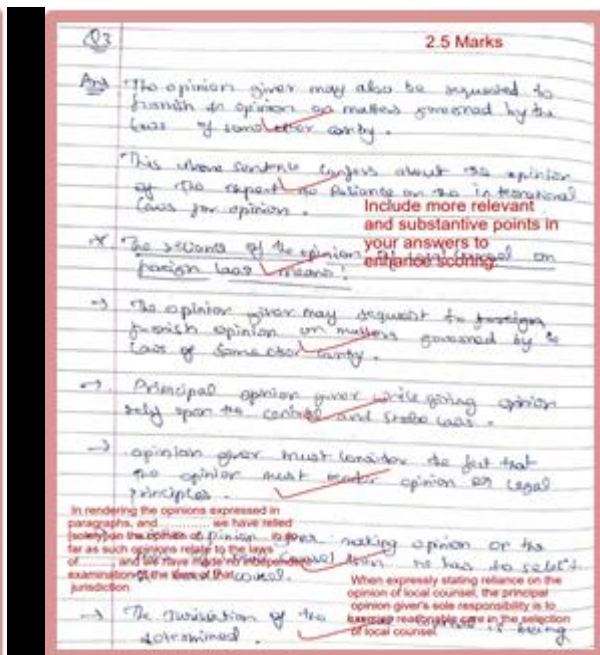 Q3
2.5 Marks
Ans The opinion giver may also be requested to
furnish an opinion on matters governed by the
laws of some other
This above sentence about the opinion
of the expert no Reliance on the international
laws for opinion.
Include more relevant
and substantive points in
your answers to
enhance scoring.
The reliance of the opinion of on
foreign laws means:
→ The opinion giver may request to
furnish opinion on matters governed by
laws of some other
→ Principal opinion giver while giving opinion
rely upon the central and state laws.
→ opinion giver must consider the fact that
the opinion must opinion or legal
principles.
In rendering the opinions expressed in
paragraphs, and ............ we have relied
[solely]on the opinion of
far as such opinions relate to the laws
of ........, and we have made no independent
examination of the laws of that
jurisdiction.
opinion making opinion or the
he has to select
counsel.
When expressly stating reliance on the
opinion of local counsel, the principal
opinion giver's sole responsibility is to
exercise reasonable care in the selection
of local counsel.
→ The of the is being
determined.